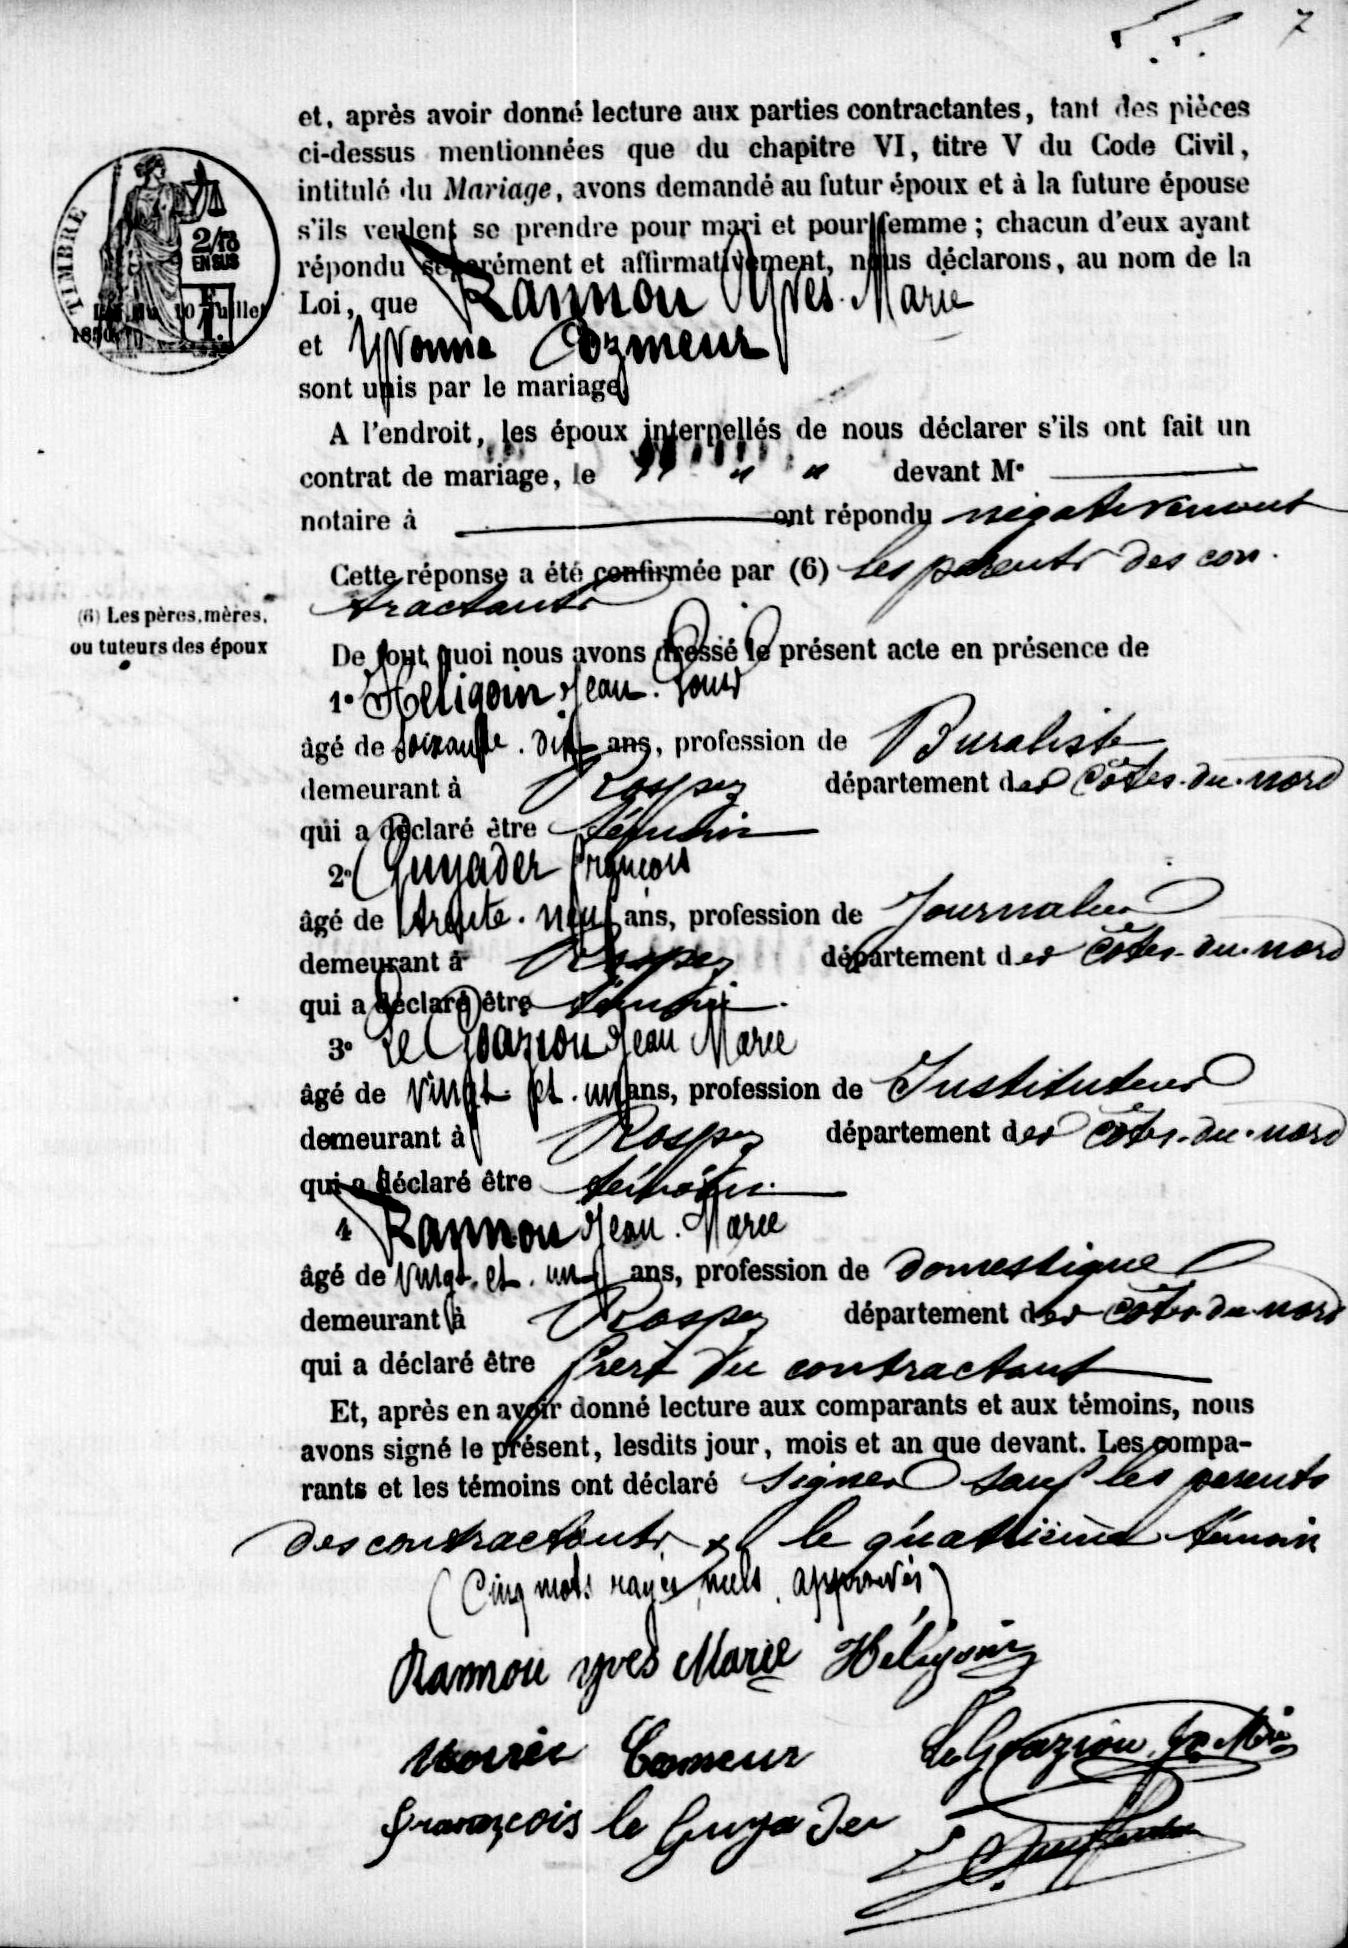 7
et, après avoir donné lecture aux parties contractantes, tant des pièces
ci-dessus mentionnées que du chapitre VI, titre V du Code Civil,
intitulé du Mariage, avons demandé au futur époux et à la future épouse
s'ils veulent se prendre pour mari et pour femme ; chacun d'eux ayant
répondu séparément et affirmativement, nous déclarons, au nom de la
Loi, que Rannou Yves Marie
et Yvonne Cozmeur
sont unis par le mariage.
TIMBRE
2/10
EN SUS
Loi du 10 Juillet
1850
A l'endroit, les époux interpellés de nous déclarer s'ils ont fait un
contrat de mariage, le " " " devant Me
notaire à ont répondu négativement
Cette réponse a été confirmée par (6) les parents des con
tractants
(6) Les pères, mères,
ou tuteurs des époux
De tout quoi nous avons dressé le présent acte en présence de
1° Héligoin Jean Louis
âgé de soixante. dix ans, profession de Buraliste
demeurant à Rospez département des Côtes-du-nord
qui a déclaré être témoin
2° Guyader François
âgé de trente. neuf ans, profession de Journalier
demeurant à Rospez département des Côtes-du-nord
qui a déclaré être témoin
3° Le Goaziou Jean Marie
âgé de vingt et un ans, profession de Instituteur
demeurant à Rospez département des Côtes-du-nord
qui a déclaré être témoin
4 Rannou Jean. Marie
âgé de vingt. et. un ans, profession de domestique
demeurant à Rospez département des Côtes-du-nord
qui a déclaré être frère du contractant
Et, après en avoir donné lecture aux comparants et aux témoins, nous
avons signé le présent, lesdits jour, mois et an que devant. Les compa-
rants et les témoins ont déclaré signer sauf les parents
des contractants & le quatrième témoin
(Cinq mots rayés nuls. approuvés)
Rannou yves Marie Héligoin
Cosmeur Le Goaziou Jn Mie
François le Guyader